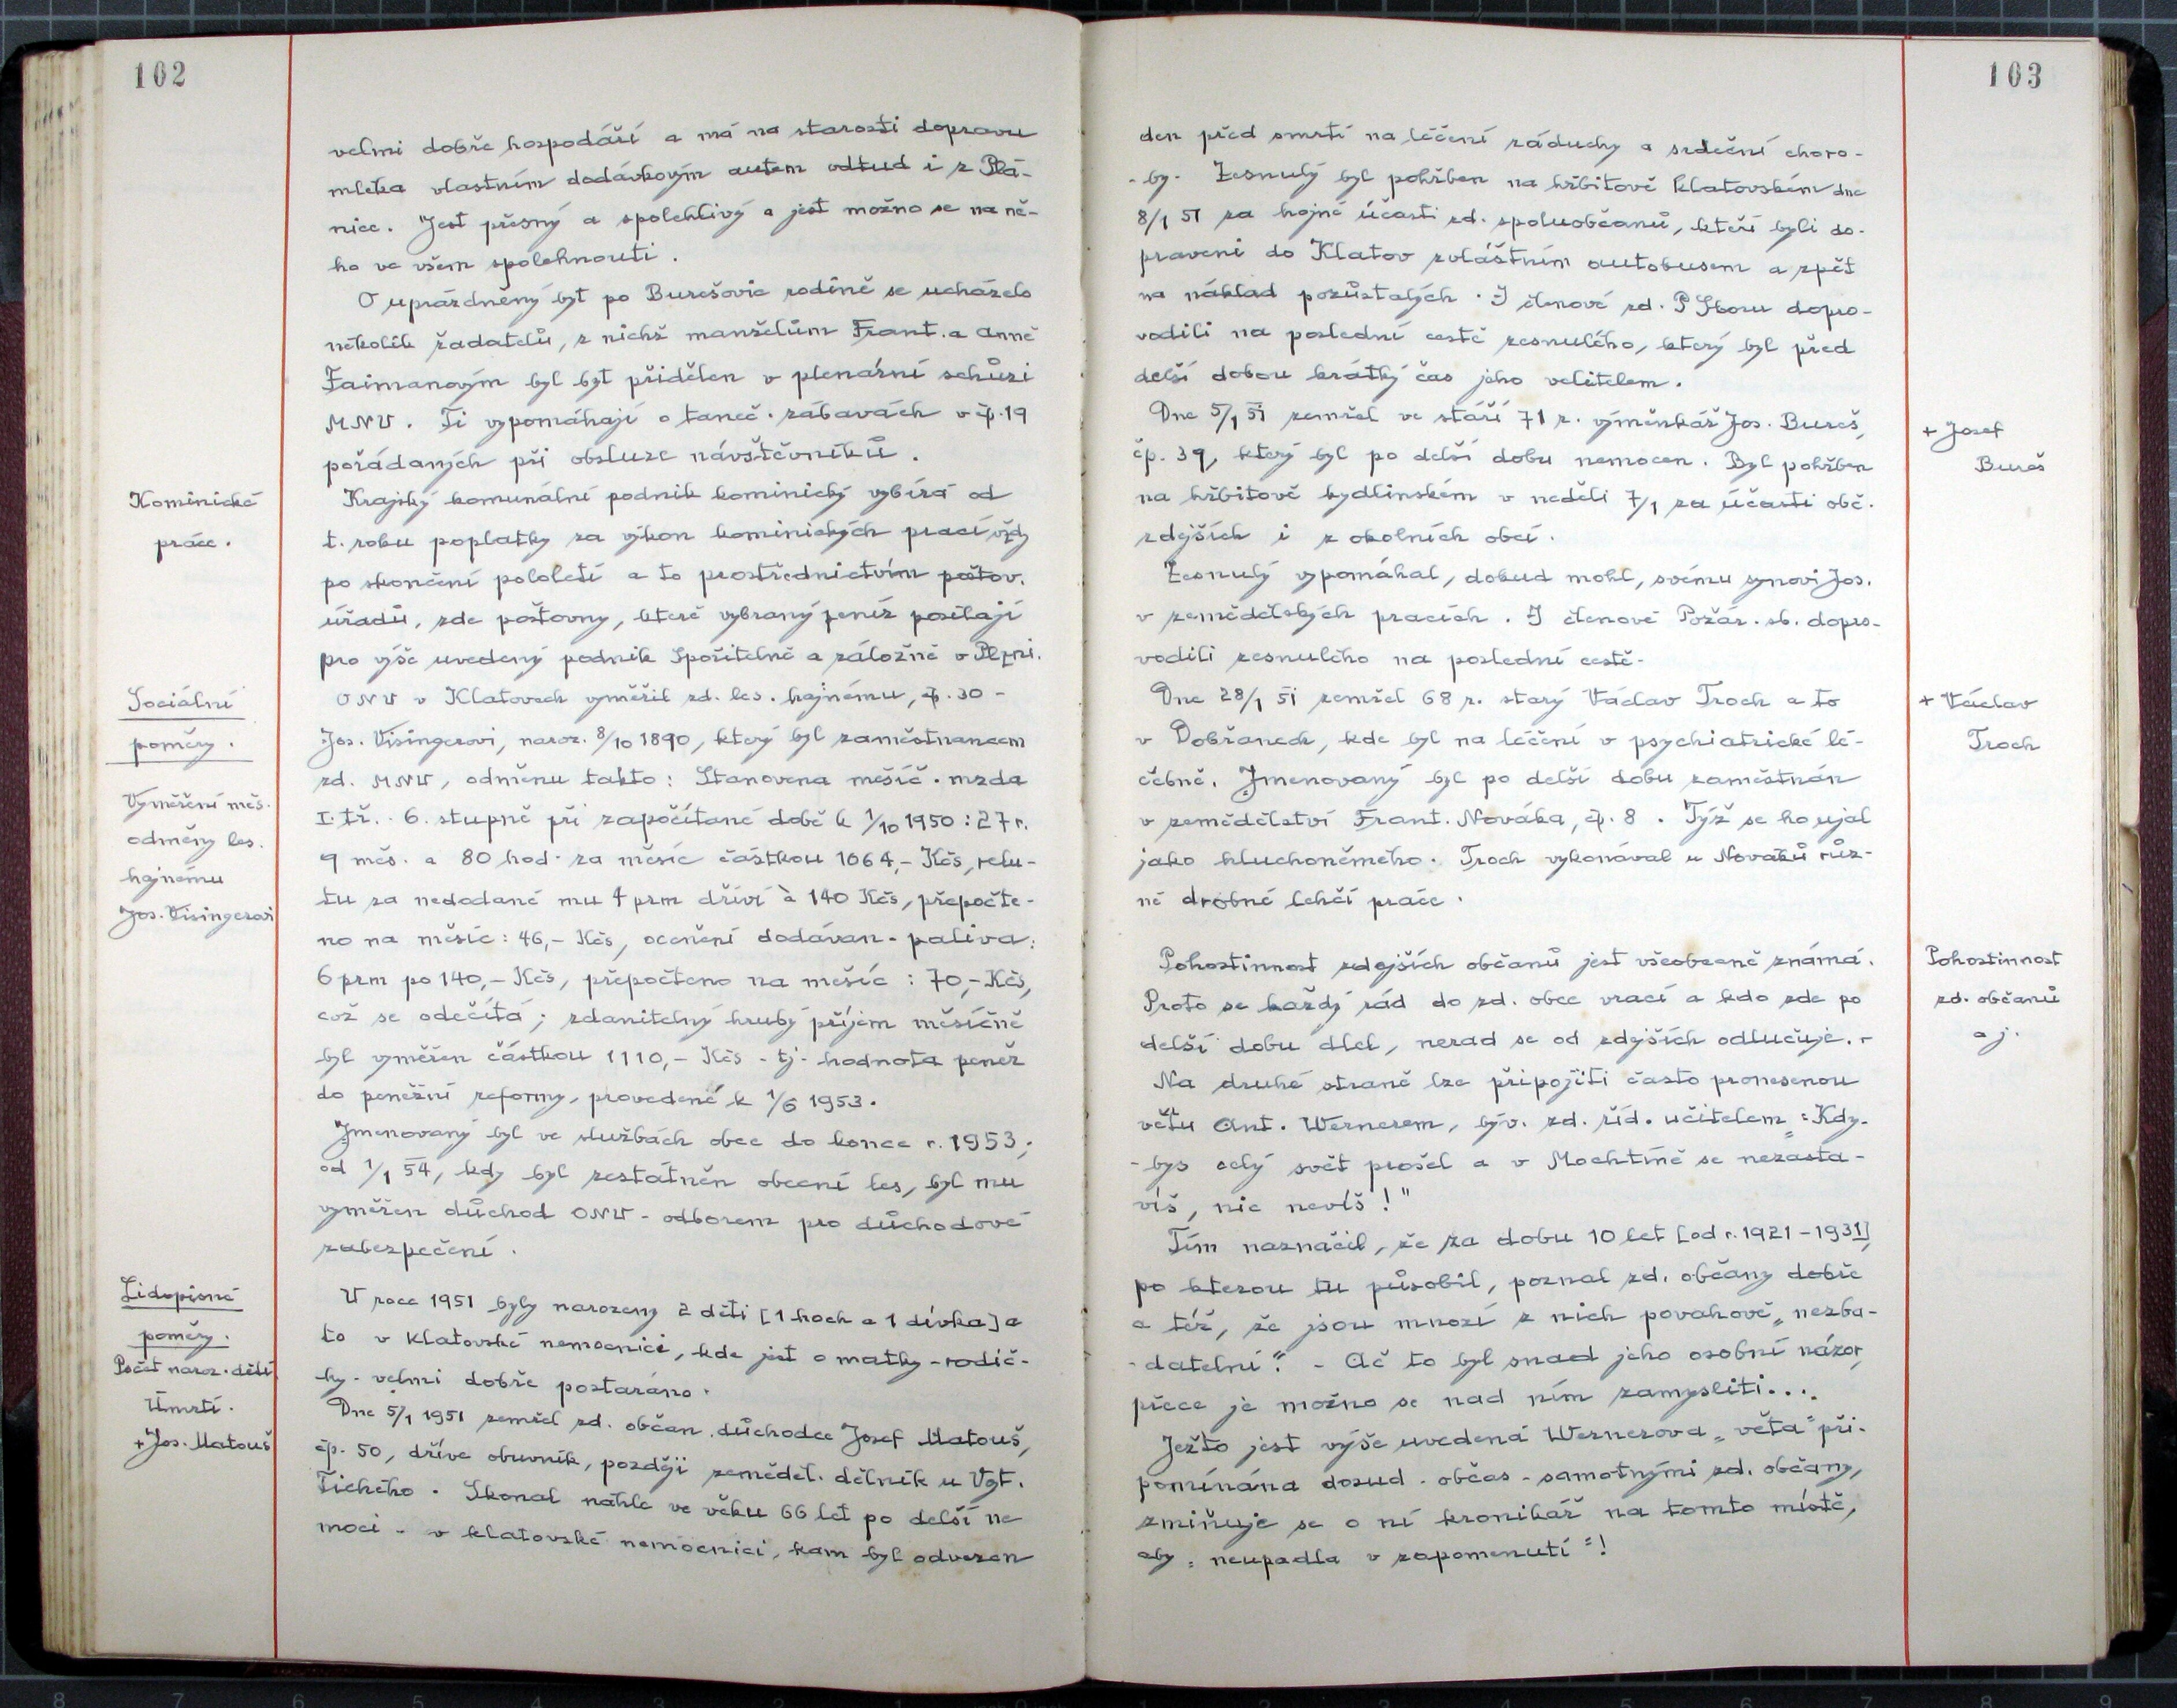 102
velmi dobře hospodáří a má na starosti dopravu
mléka vlastním dodávkovým autem odtud i z Plá-
nice. Jest přesný a spolehlivý a jest možno se na ně-
ho ve všem spolehnouti.
O uprázdněný byt po Burešovic rodině se ucházelo
několik žadatelů, z nichž manželům Frant. a Anně
Faimanovým byl byt přidělen v plenární schůzi
MNV. Ti vypomáhají o taneč. zábavách v čp. 19
pořádaných při obsluze návštěvníků.
Kominické
práce.
Krajský komunální podnik kominický vybírá od
t. roku poplatky za výkon kominických prací vždy
po skončení pololetí a to prostřednictvím poštov.
úřadů, zde poštovny, které vybraný peníz posílají
pro výše uvedený podnik Spořitelně a záložně v Plzni.
Sociální
poměry.
Vyměření měs.
odměny les.
hajnému
Jos. Visingerovi
ONV v Klatovech vyměřil zd. les. hajnému, čp. 30 -
Jos. Visingerovi, naroz. 8/10 1890, který byl zaměstnancem
zd. MNV, odměnu takto: Stanovena měsíč. mzda
I. tř. - 6. stupně při započítané době k 1/10 1950: 27 r.
9 měs. a 80 hod. za měsíc částkou 1064,- Kčs, relu-
tu za nedodané mu 4 prm dříví à 140 Kčs, přepočte-
no na měsíc: 46,- Kčs, ocenění dodávan. paliva:
6 prm po 140,- Kčs, přepočteno na měsíc: 70,- Kčs,
což se odečítá; zdanitelný hrubý příjem měsíčně
byl vyměřen částkou 1110,- Kčs - tj. hodnota peněz
do peněžní reformy, provedené k 1/6 1953.
Jmenovaný byl ve službách obce do konce r. 1953;
od 1/1 54, kdy byl zestátněn obecní les, byl mu
vyměřen důchod ONV - odborem pro důchodové
zabezpečení.
Lidopisné
poměry.
Počet naroz. dětí
Úmrtí.
+ Jos. Matouš
V roce 1951 byly narozeny 2 děti [1 hoch a 1 dívka] a
to v klatovské nemocnici, kde jest o matky - rodič-
ky - velmi dobře postaráno.
Dne 5/1 1951 zemřel zd. občan důchodce Josef Matouš,
čp. 50, dříve obuvník, později zeměděl. dělník u Vojt.
Tichého. Skonal náhle ve věku 66 let po delší ne
moci - v klatovské nemocnici, kam byl odvezen
103
den před smrtí na léčení záduchy a srdeční choro-
-by. Zesnulý byl pohřben na hřbitově klatovském dne
8/1 51 za hojné účasti zd. spoluobčanů, kteří byli do-
praveni do Klatov zvláštním autobusem a zpět
na náklad pozůstalých. I členové zd. P Sboru dopro-
vodili na poslední cestě zesnulého, který byl před
delší dobou krátký čas jeho velitelem.
+ Josef
Bureš
Dne 5/1 51 zemřel ve stáří 71 r. výměnkář Jos. Bureš,
čp. 39, který byl po delší dobu nemocen. Byl pohřben
na hřbitově bydlinském v neděli 7/1 za účasti obč.
zdejších i z okolních obcí.
Zesnulý vypomáhal, dokud mohl, svému synovi Jos.
v zemědělských pracích. I členové Požár. sb. dopro-
vodili zesnulého na poslední cestě.
+ Václav
Troch
Dne 28/1 51 zemřel 68 r. starý Václav Troch a to
v Dobřanech, kde byl na léčení v psychiatrické lé-
čebně. Jmenovaný byl po delší dobu zaměstnán
v zemědělství Frant. Nováka, čp. 8. Týž se ho ujal
jako hluchoněmého. Troch vykonával u Nováků růz-
né drobné lehčí práce.
Pohostinnost
zd. občanů
a j.
Pohostinnost zdejších občanů jest všeobecně známá.
Proto se každý rád do zd. obce vrací a kdo zde po
delší dobu dlel, nerad se od zdejších odlučuje. -
Na druhé straně lze připojiti často pronesenou
větu Ant. Wernerem, býv. zd. říd. učitelem: „Kdy-
-bys celý svět prošel a v Mochtíně se nezasta-
víš, nic nevíš!"
Tím naznačil, že za dobu 10 let [od r. 1921 - 1931],
po kterou tu působil, poznal zd. občany dobře
a též, že jsou mnozí z nich povahově „nezba-
-datelní". - Ač to byl snad jeho osobní názor,
přece je možno se nad ním zamysliti....
Ježto jest výše uvedená Wernerova „věta" při-
pomínána dosud - občas - samotnými zd. občany,
zmiňuje se o ní kronikář na tomto místě,
aby „neupadla v zapomenutí"!